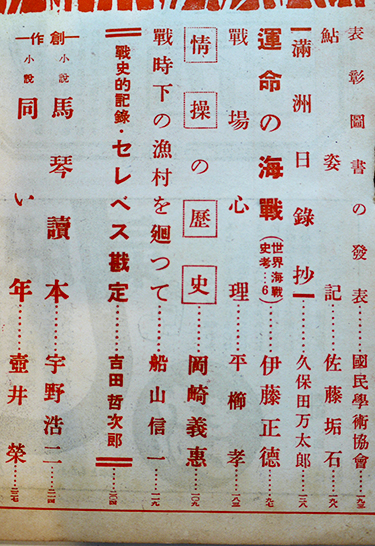 表彰圖書の發表……國民學術協會
鮎姿記……佐藤垢石
滿洲日錄抄……久保田万太郎
運命の海戰（世界海戰史考…6）……伊藤正德
戰場心理……平櫛孝
情操の歷史……岡崎義惠
戰時下の漁村を廻つて……船山信一
戰史的記錄・セレベス戡定……吉田哲次郎
創作
小說 馬琴讀本……宇野浩二
小說 同い年……壺井榮